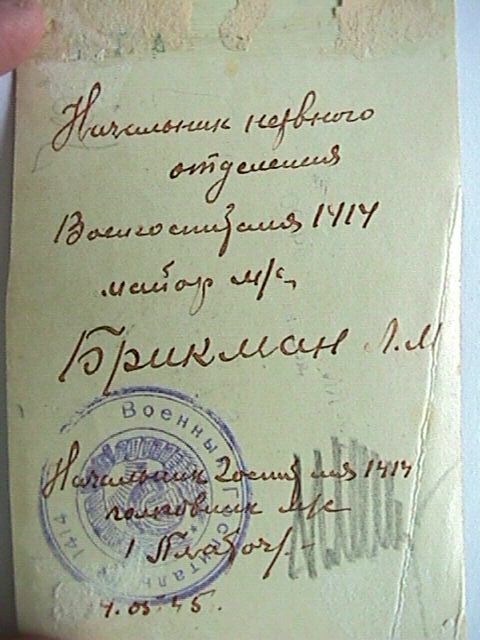 Начальник нервного
отделения
Военгоспиталя 1414
майор м/с
Брикман Л.М
Военный Госпиталь 1414
Начальник Госпиталя 1414
полковник м/с
4.05.45.